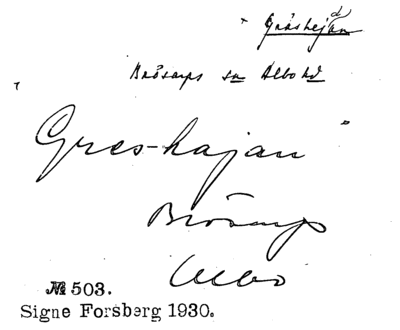 Gråshejdan
Brösarps sn Albo hd
Gres-hajan
Brösarp
Albo
№ 503.
Signe Forsberg 1930.